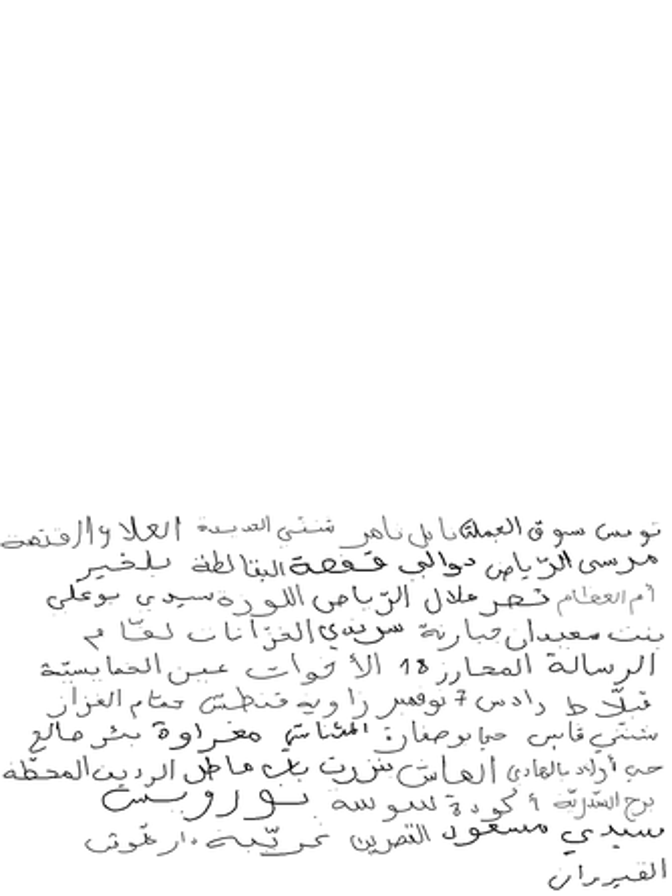 تونس سوق العملة نابل نامر شنني الجديدة العلا والرقنصة
مرسى الرياض دوالي قفصة البقالطة بلخير
أم العظام قصر هلال الرياض اللوزة سيدي بوعلي
بنت سعيدان جبارنة سريدي الخزانات لقام
الرسالة المحارز 18 الأخوات عين الحمايستية
قبلاط رادس 7 نوفمبر زاوية قنطش حمام الغزاز
شنني قابس حي بوصفان المشناشي مغراوة بئر صالح
حي أولاد بالهادي بنزرت باب ماطل الرديف المحطة
برج السدرية أكودة سوسة نوروبس
سيدي مسعود القصرين دار علوش
القيروان